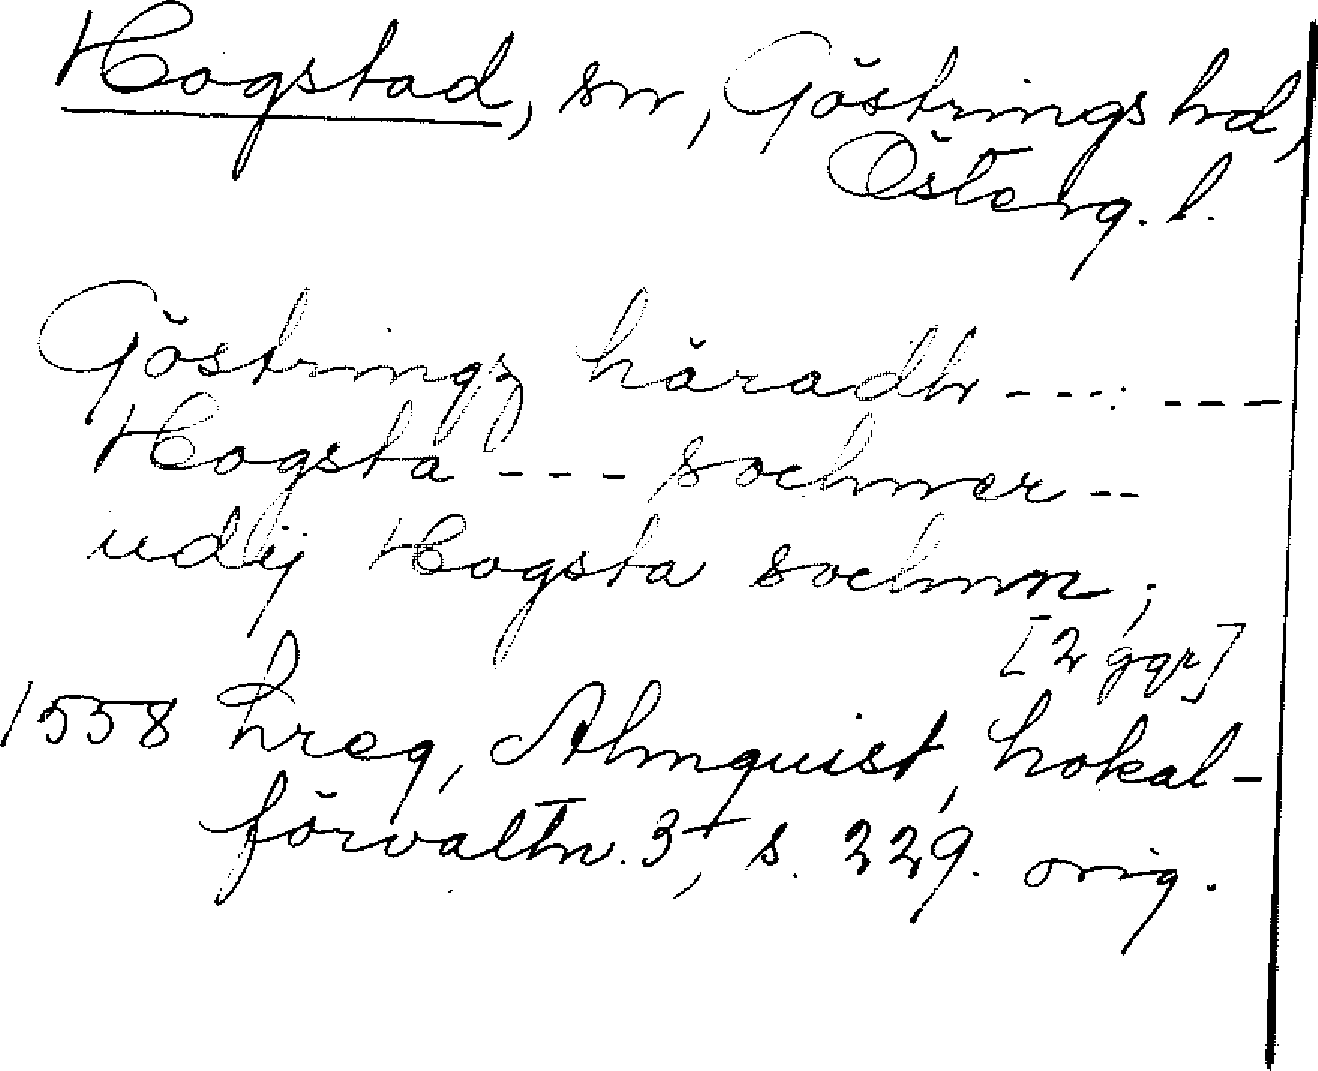 Hogstad, sn, Göstrings hd,
Österg. l.
Göstringz häradh --- ---
Hogsta --- sochner --
udij Hogsta sochnn;
[2 ggr]
1558 hreg, Almquist, Lokal-
förvaltn. 3, s. 229. orig.